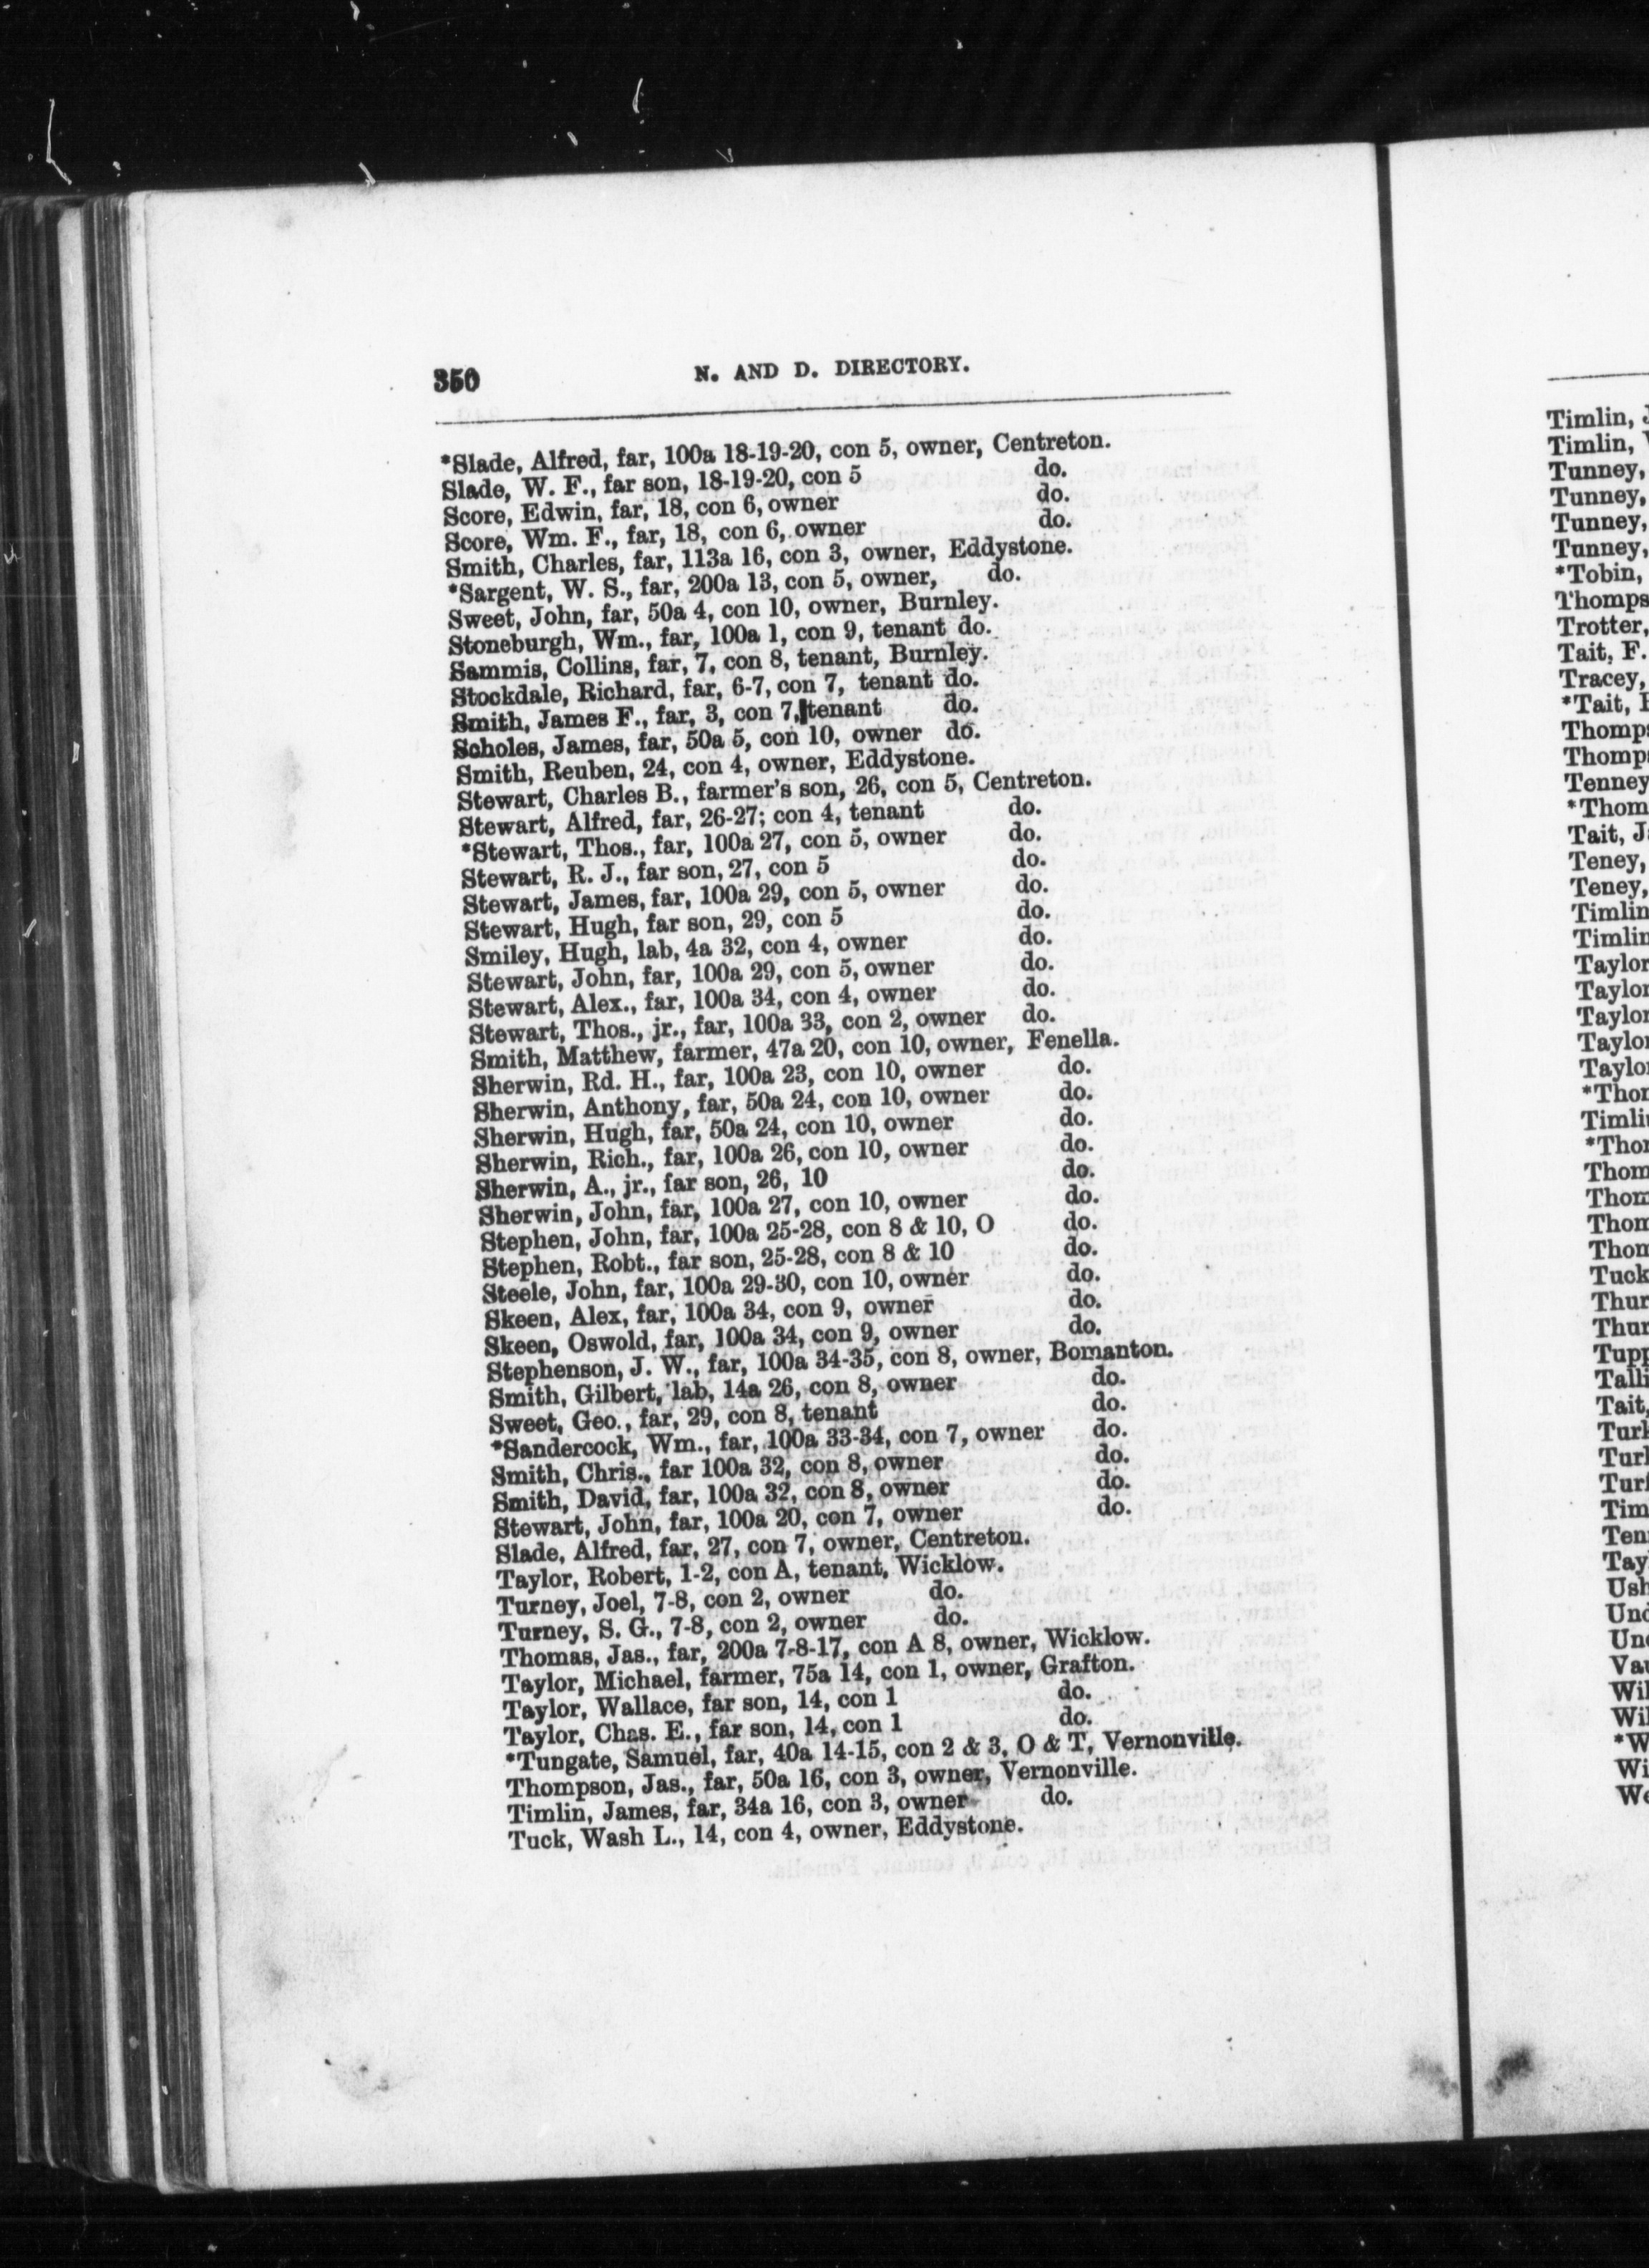 350 N. AND D. DIRECTORY.
*Slade, Alfred, far, 100a 18-19-20, con 5, owner, Centreton.
Slade, W. F., far son, 18-19-20, con 5 do.
Score, Edwin, far, 18, con 6, owner do.
Score, Wm. F., far, 18, con 6, owner do.
Smith, Charles, far, 113a 16, con 3, owner, Eddystone.
*Sargent, W. S., far, 200a 13, con 5, owner, do.
Sweet, John, far, 50a 4, con 10, owner, Burnley.
Stoneburgh, Wm., far, 100a 1, con 9, tenant do.
Sammis, Collins, far, 7, con 8, tenant, Burnley.
Stockdale, Richard, far, 6-7, con 7, tenant do.
Smith, James F., far, 3, con 7, tenant do.
Scholes, James, far, 50a 5, con 10, owner do.
Smith, Reuben, 24, con 4, owner, Eddystone.
Stewart, Charles B., farmer's son, 26, con 5, Centreton.
Stewart, Alfred, far, 26-27; con 4, tenant do.
*Stewart, Thos., far, 100a 27, con 5, owner do.
Stewart, R. J., far son, 27, con 5 do.
Stewart, James, far, 100a 29, con 5, owner do.
Stewart, Hugh, far son, 29, con 5 do.
Smiley, Hugh, lab, 4a 32, con 4, owner do.
Stewart, John, far, 100a 29, con 5, owner do.
Stewart, Alex., far, 100a 34, con 4, owner do.
Stewart, Thos., jr., far, 100a 33, con 2, owner do.
Smith, Matthew, farmer, 47a 20, con 10, owner, Fenella.
Sherwin, Rd. H., far, 100a 23, con 10, owner do.
Sherwin, Anthony, far, 50a 24, con 10, owner do.
Sherwin, Hugh, far, 50a 24, con 10, owner do.
Sherwin, Rich., far, 100a 26, con 10, owner do.
Sherwin, A., jr., far son, 26, 10 do.
Sherwin, John, far, 100a 27, con 10, owner do.
Stephen, John, far, 100a 25-28, con 8 & 10, O do.
Stephen, Robt., far son, 25-28, con 8 & 10 do.
Steele, John, far, 100a 29-30, con 10, owner do.
Skeen, Alex, far, 100a 34, con 9, owner do.
Skeen, Oswold, far, 100a 34, con 9, owner do.
Stephenson, J. W., far, 100a 34-35, con 8, owner, Bomanton.
Smith, Gilbert, lab, 14a 26, con 8, owner do.
Sweet, Geo., far, 29, con 8, tenant do.
*Sandercock, Wm., far, 100a 33-34, con 7, owner do.
Smith, Chris., far 100a 32, con 8, owner do.
Smith, David, far, 100a 32, con 8, owner do.
Stewart, John, far, 100a 20, con 7, owner do.
Slade, Alfred, far, 27, con 7, owner, Centreton.
Taylor, Robert, 1-2, con A, tenant, Wicklow.
Turney, Joel, 7-8, con 2, owner do.
Turney, S. G., 7-8, con 2, owner do.
Thomas, Jas., far, 200a 7-8-17, con A 8, owner, Wicklow.
Taylor, Michael, farmer, 75a 14, con 1, owner, Grafton.
Taylor, Wallace, far son, 14, con 1 do.
Taylor, Chas. E., far son, 14, con 1 do.
*Tungate, Samuel, far, 40a 14-15, con 2 & 3, O & T, Vernonville.
Thompson, Jas., far, 50a 16, con 3, owner, Vernonville.
Timlin, James, far, 34a 16, con 3, owner do.
Tuck, Wash L., 14, con 4, owner, Eddystone.
Timlin,
Timlin,
Tunney,
Tunney,
Tunney,
Tunney,
*Tobin,
Thomps
Trotter,
Tait, F.
Tracey,
*Tait,
Thomp
Thomp
Tenney
*Thom
Tait, J
Teney,
Teney,
Timlin
Timlin
Taylor
Taylor
Taylor
Taylo
Taylo
*Thor
Timli
*Tho
Thom
Thom
Thom
Thom
Tuck
Thur
Thur
Tupp
Talli
Tait,
Turk
Turl
Turl
Tim
Ten
Tay
Ush
Und
Un
Va
Wil
Wi
*W
Wi
We